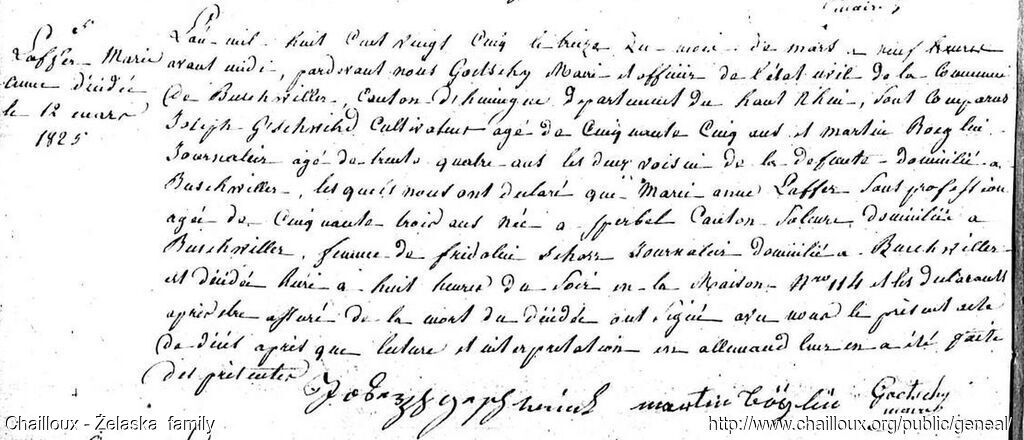 maire
5
Laffer Marie
anne décédée
le 12 mars
1825
L'an mil huit cent vingt cinq le treize du mois de mars a neuf heures
avant midi, pardevant nous Goetschy Maire et officier de l'état civil de la Commune
de Buschwiller, Canton d'huningue departement du haut Rhin, sont Comparus
Joseph Gschwind Cultivateur agé de Cinquante Cinq ans et martin Boeglin
Journalier agé de trente quatre ans les deux voisin de la defunte domicilié a
Buschwiller, lesquels nous ont déclaré que Marie anne Laffer sans profession
agée de Cinquante trois ans née a Sperbel Canton Soleure domiciliée a
Buschwiller, femme de fridolin Schorr Journalier domicilié a Buschwiller
est décédée hier a huit heures du soir en la Maison Nro 114 et les declarants
après être assuré de la mort du décédée ont signé avec nous le présent acte
de décès après que lecture et interpretation en allemand leur en a été faite
des présentes
Joseph gschwind martin Böglin Goetschy
maire
Chailloux - Żelaska family
http://www.chailloux.org/public/geneal/